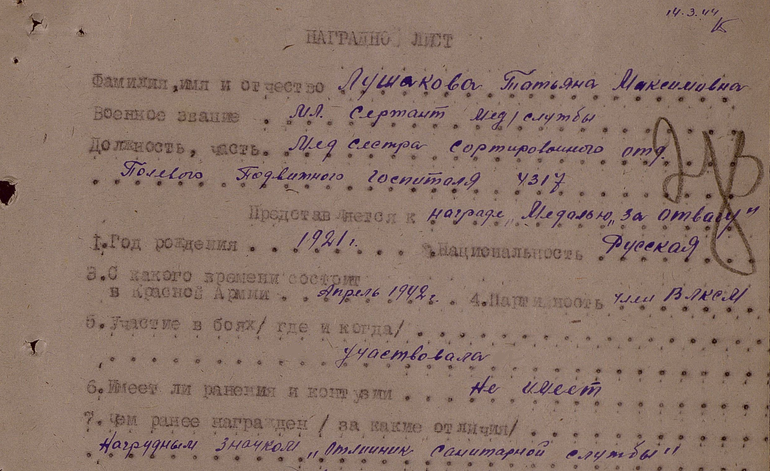 14.3.44
НАГРАДНО ЛИСТ
Фамилия, имя и отчество Лушакова Татьяна Максимовна
Военное звание . Мл. Сержант Мед/службы
Должность, часть. Мед сестра сортировочного отд.
Полевого Подвижного госпиталя 4317
Представ яется к награде „Медалью „за отвагу"
1.Год рождения . . 1921г. . . 2.Национальность Русская
3.С какого времени состоит
в Красной Армии . . Апрель 1942г. . 4.Парти ность член ВЛКСМ
5.Участие в боях/ где и когда/
участвовала
6.Имеет ли ранения и контузии . . . Не имеет
7.Чем ранее награжден / за какие отличия/
Нагрудным значком „Отличник санитарной службы"